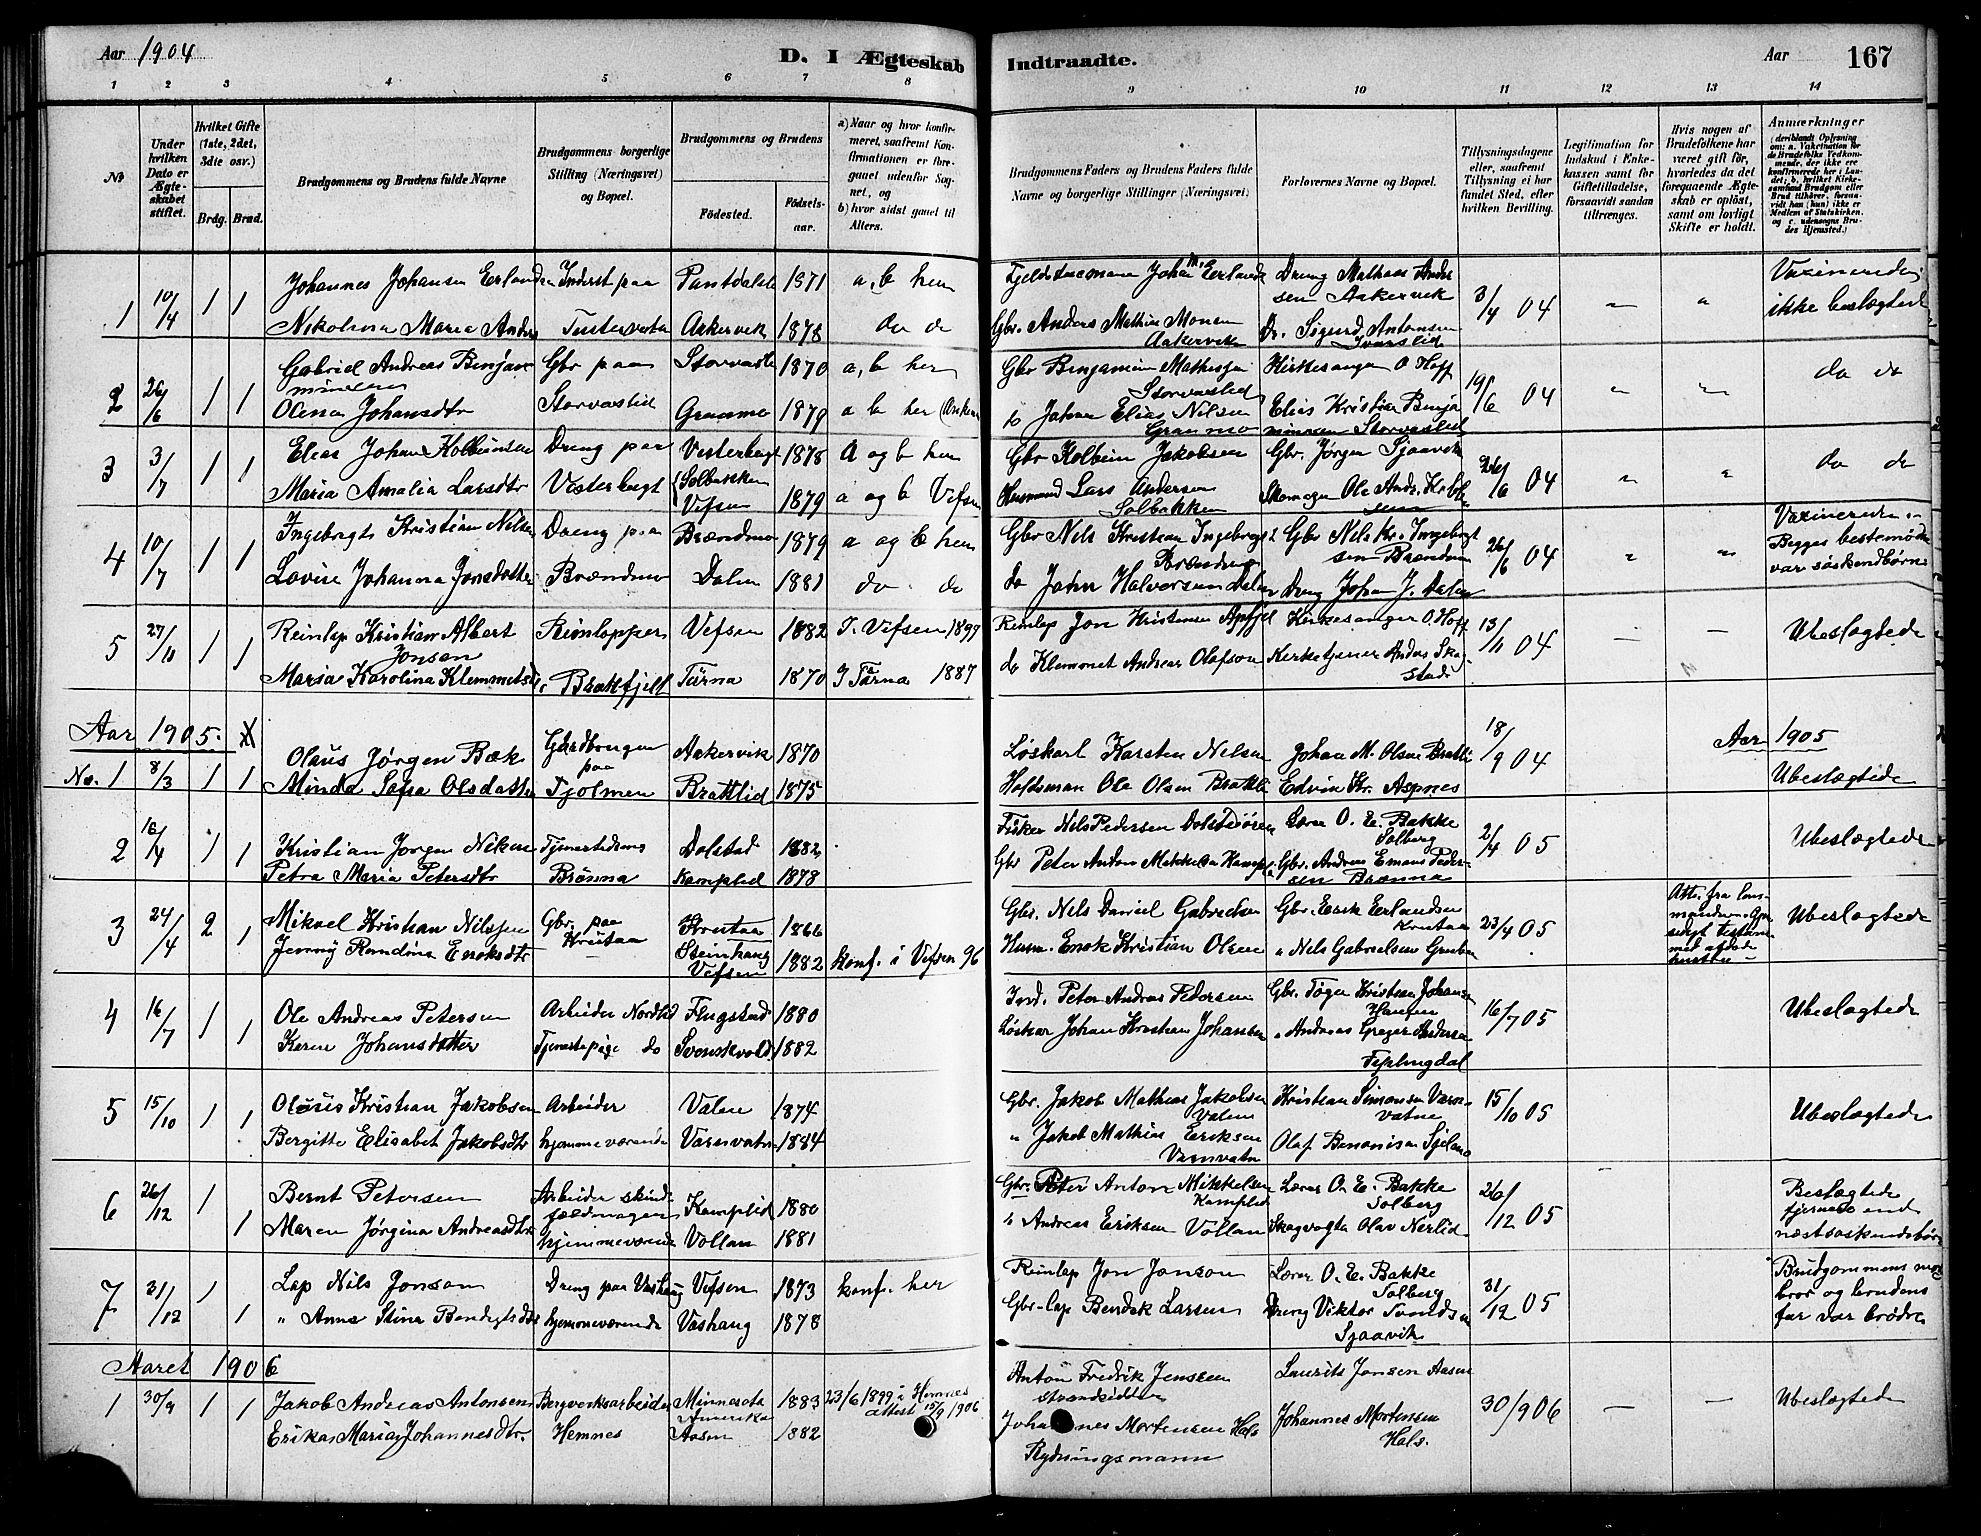 Aar 1904
D. I Ægteskab Indtraadte.
Aar 167
1 2 3 4 5 6 7 8 9 10 11 12 13 14
No
Under hvilken Dato er Ægteskabet stiftet.
Hvilket Gifte (1ste, 2det, 3die osv.)
Brdg. Brud.
Brudgommens og Brudens fulde Navne
Brudgommens borgerlige Stilling (Næringsvei) og Bopæl.
Brudgommens og Brudens
Fødested. Fødselsaar.
a) Naar og hvor konfirmeret, saafremt Konfirmationen er foregaaet udenfor Sognet, og
b) hvor sidst gaaet til Alters.
Brudgommens Faders og Brudens Faders fulde Navne og borgerlige Stillinger (Næringsvei)
Forlovernes Navne og Bopæl.
Tillysningsdagene eller, saafremt Tillysning ei har fundet Sted, efter hvilken Bevilling.
Legitimation for Indskud i Enkekassen samt for Giftetilladelse, forsaavidt saadan tiltrænges.
Hvis nogen af Brudefolkene har været gift før, hvorledes da det foregaaende Ægteskab er opløst, samt om lovligt Skifte er holdt.
Anmærkninger
(deriblandt Oplysning om: a. Vakcination for de Brudefolks Vedkommende, der ikke ere konfirmerede her i Landet; b. hvilket Kirkesamfund Brudgom eller Brud tilhører, forsaavidt han (hun) ikke er Medlem af Statskirken, og c. udensogns Brudes Hjemsted.)
1 10/4 1 1 Johannes Johansen Erlandsen Inderst paa Pantdalsli 1871 a, b her
Nikolina Maria Anders Tustervatn Aakervik 1878 do do
Fjeldstuemann Johan M. Erlands Dreng Mathias Andersen Aakervik 3/4 04 " " Vaxinerede, ikke beslægtede
Gbr. Anders Mathias Monsen Aakervik Dr. Sigurd Antonsen Ivarslid
2 26/6 1 1 Gabriel Andreas Benjaminsen Gbr paa Storvastli 1870 a, b her
Olena Johansdtr Storvastlid Graamo 1879 a b her
Gbr Benjamin Mathesen Storvastlid Kirkesanger O Hoff 19/6 04 " " do do
Johan Elias Nilsen Graumo Elias Kristian Benjaminsen Storvastlid
3 3/7 1 1 Elias Johan Kolbeinsen Dreng paa Vesterbugt 1878 a og b her
Maria Amalia Larsdtr Vesterbugt Solbakken Vefsen 1879 a og b Vefsen
Gbr Kolbein Jakobsen Gbr. Jørgen Sjaavik 26/6 04 " " do do
Husmand Lars Andersen Solbakken Skomager Ole Andr.
4 10/7 1 1 Ingebrigt Kristian Nilsen Dreng paa Brændmo 1879 a og b her
Lovise Johanna Jonsdotter Brændmo Dalen 1881 do do
Gbr Nils Kristian Ingebrigts Brændmo Gbr Nils Kr. Ingebrigtsen Brændmo 26/6 04 " " Vaxinerede. Begges bestemødre var søskendbørn
do John Halvorsen Dalen Dreng Johan J. Dalen
5 27/11 1 1 Reinlap Kristian Albert Jonsen Reinlapper Vefsen 1882 I Vefsen 1899
Maria Karolina Klemmetsdtr Brækfjell Tärna 1870 I Tärna 1887
Reinlap Jon Kristensen Apfjel Kirkesanger O. Hoff 13/11 04 — — Ubeslægtede
do Klemmet Andreas Olafson Kirketjener Anders Skogstad
Aar 1905.
Aar 1905
No. 1 8/3 1 1 Olaus Jørgen Bæk Gaardbruger paa Aakervik 1870
Minda Sofia Olsdatter Tjolmen Brattlid 1875
Løskarl Karsten Nilsen Johan M. Olsen Brattli 18/9 04 Ubeslægtede
Holdsman Ole Olsen Brattli Edvin Kr. Aspnes
2 16/4 1 1 Kristian Jørgen Nilsen Dolstad 1882
Petra Maria Petersdtr Brønna Kamplid 1878
Fisker Nils Pedersen Lærer O. E. Bakke Solberg 2/4 05 Ubeslægtede
Gbr Peter Anton Mikkelsen Gbr. Andreas Pedersen Brænna
3 24/4 2 1 Mikael Kristian Nilssen Gbr. paa Krutaa Krutaa 1866
Jenny Randina Enoksdtr — Steinhaug Vefsen 1882 konf. i Vefsen 96
Gbr. Nils Daniel Gabrielsen Gbr. Eirik Erlandsen Krutaa 23/4 05 Ubeslægtede
Husm. Enok Kristian Olsen " Nils Gabrielsen
4 16/7 1 1 Ole Andreas Petersen Arbeider Nordlid Flugstad 1880
Karen Johansdatter Tjenestepige do Svenskvold 1882
Ind. Peter Andreas Pedersen Gbr. Tøger Kristian Johansen 16/7 05 Ubeslægtede
Løskar Johan Kristian Johansen " Andreas Greger Andersen Fiplingdal
5 15/10 1 1 Olaus Kristian Jakobsen Arbeider Valen 1874
Bergitte Elisabet Jakobsdtr hjemmeværende Varnvatn 1884
Gbr. Jakob Mathias Jakobsen Valen Kristian Simonsen Varnvatne 15/10 05 Ubeslægtede
" Jakob Mathias Eriksen Varnvatn Olaf Benonisen
6 26/12 1 1 Bernt Petersen Arbeider skindfældmager Kamplid 1880
Maren Jørgina Andreasdtr hjemmeværende Vollan 1881
Gbr. Peter Anton Mikkelsen Kamplid Lærer O. E. Bakke Solberg 26/12 05 Beslægtede fjernere end næstsøskendebørn
Andreas Eriksen Vollan Skogvogter Olav Nerlid
7 31/12 1 1 Lap Nils Jonson Dreng paa Vashaug Vefsen 1873 konf. her
" Anna Stina Bendigtsdtr hjemmeværende Vashaug 1878
Reinlap Jon Jonson Lærer O. E. Bakke Solberg 31/12 05 Brudgommens morbror og brudens far var brødre
Gbr-lap Bendik Larsen Dreng Viktor Sjaavik
Aaret 1906
1 30/9 1 1 Jakob Andreas Antonsen Bergverksarbeider Minnesota Amerika 1883 23/6 1899 i Hemnes attest 15/9 1906
Erika Maria Johannesdtr. Hemnes Aasen 1882
Anton Fredrik Jenssen strandsidder Laurits Jonsen Aasen 30/9 06 — — Ubeslægtede
Johannes Mortensen Hals Rydningsmann Johannes Mortensen Hals.